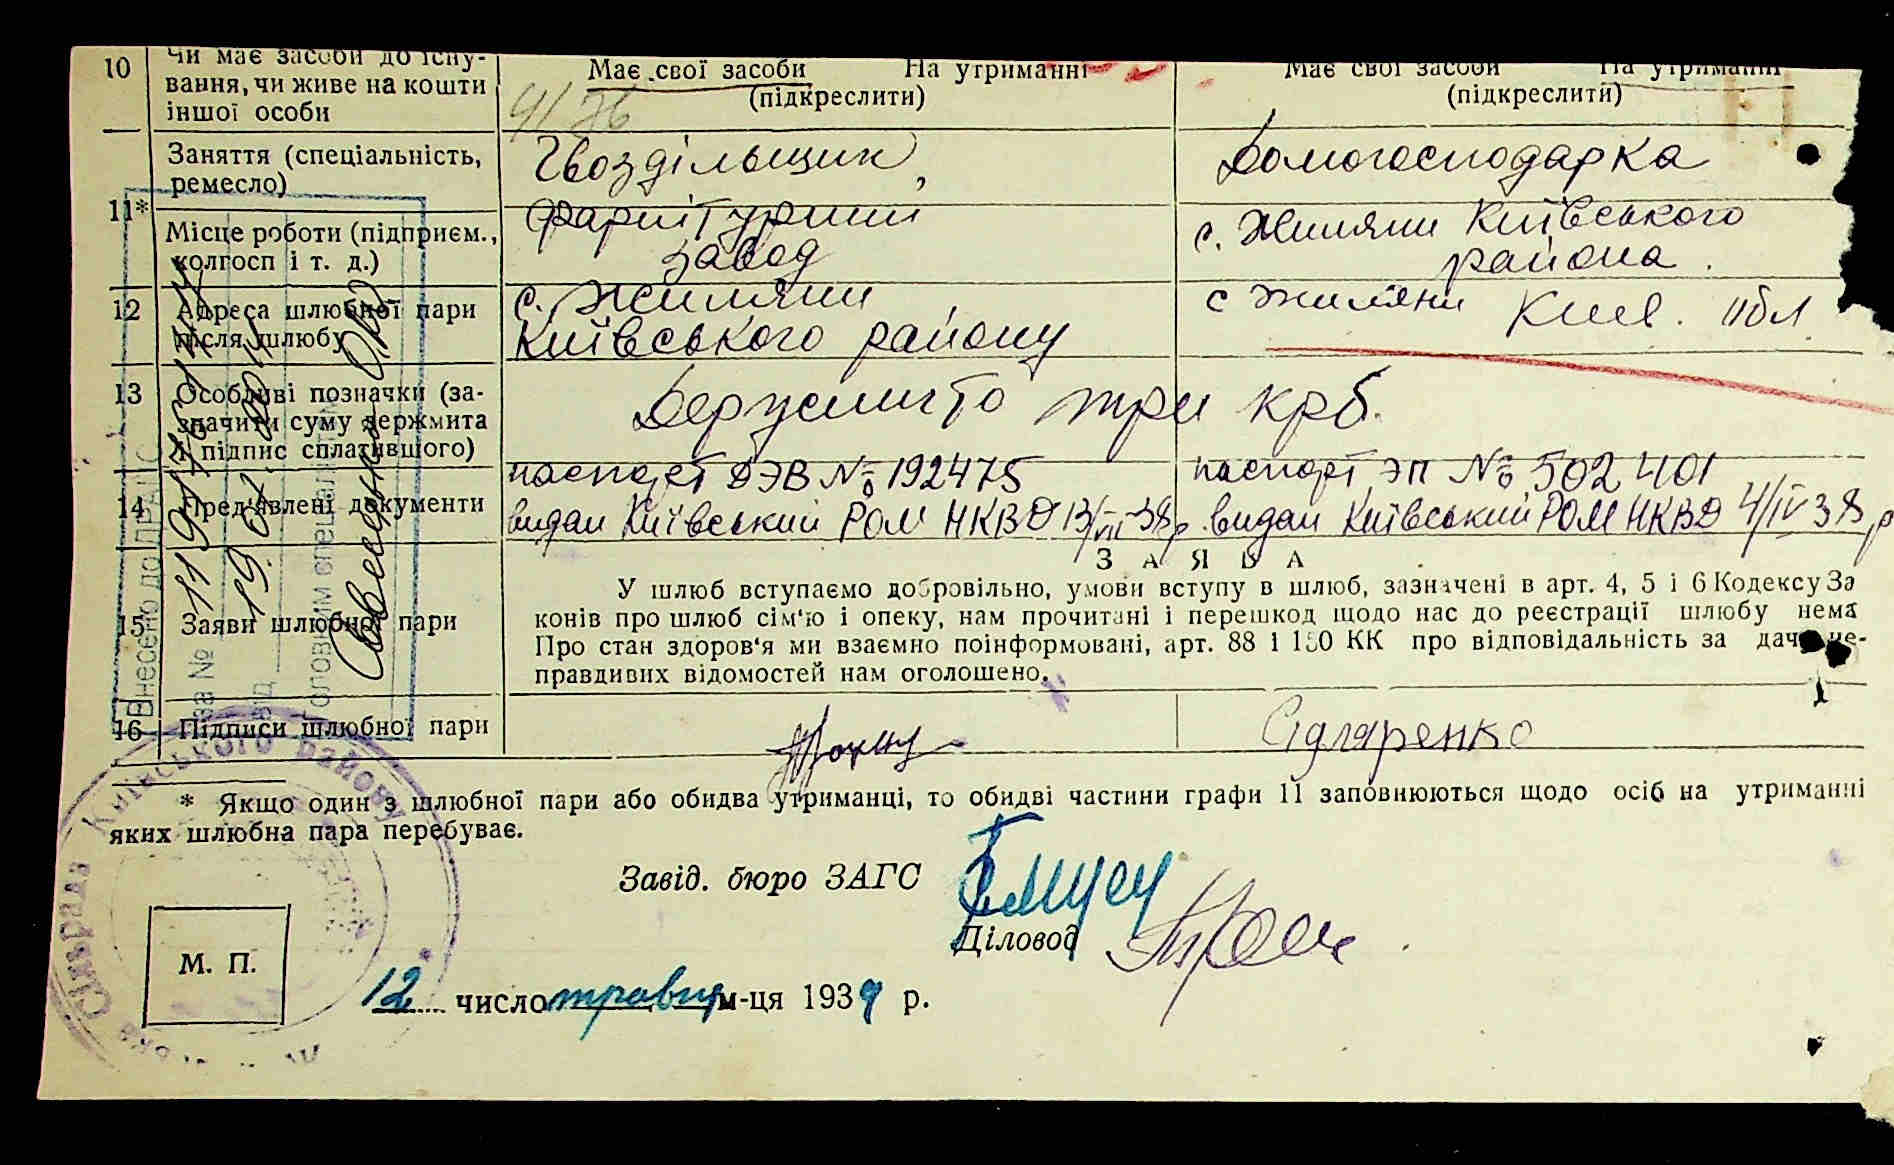 10 Чи має засоби до існу-
вання, чи живе на кошти
іншої особи
Має свої засоби На утриманні
(підкреслити)
Має свої засоби На утриманні
(підкреслити)
11* Заняття (спеціальність,
ремесло)
Гвоздільщик,
Домогосподарка
Місце роботи (підприєм.,
колгосп і т. д.)
завод
с. Жиляни Київського
района.
12 Адреса шлюбної пари
після шлюбу
с. Жиляни
Київського району
с Жиляни Киев. обл
13 Особливі позначки (за-
значити суму держмита
і підпис сплатившого)
Держмито три крб.
14 Пред'явлені документи
паспорт ДЭВ № 192475
видан Київський РОМ НКВД 13/VII-38р
паспорт ЭП № 502401
видан Київський РОМ НКВД 4/IV 38 р
15 Заяви шлюбної пари
ЗАЯВА
У шлюб вступаємо добровільно, умови вступу в шлюб, зазначені в арт. 4, 5 і 6 Кодексу За
конів про шлюб сім'ю і опеку, нам прочитані і перешкод щодо нас до реєстрації шлюбу нема
Про стан здоров'я ми взаємно поінформовані, арт. 88 і 130 КК про відповідальність за дачу не-
правдивих відомостей нам оголошено.
16 Підписи шлюбної пари
Сідляренко
* Якщо один з шлюбної пари або обидва утриманці, то обидві частини графи 11 заповнюються щодо осіб на утриманні
яких шлюбна пара перебуває.
Завід. бюро ЗАГС
Діловод
М. П.
12 число травня м-ця 1939 р.
Внесено до ДРАЦС
за №
від
Головним спеціалістом
Савеленко
Київського району
Сільрада